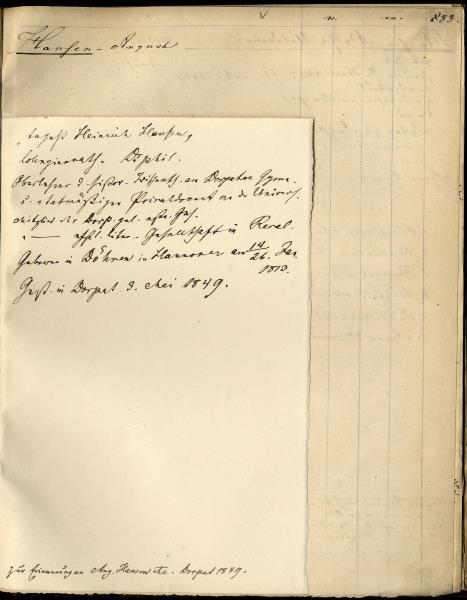 833.
Hansen - August
August Heinrich Hansen,
Collegienrath. Dr phil.
Oberlehrer d. histor. Wissensch. am Dorpater Gymn.
u. etatmäßiger Privatdocent an der Univers.
Mitglied der Dorp. gel. estn. Ges.
" — ehstl. liter. Gesellschaft in Reval.
Geboren in Döhren in Hannover am 14/26. Jan.
1813.
Gest. in Dorpat 3. Mai 1849.
Zur Erinnerung an Aug. Hansen etc. Dorpat 1849.